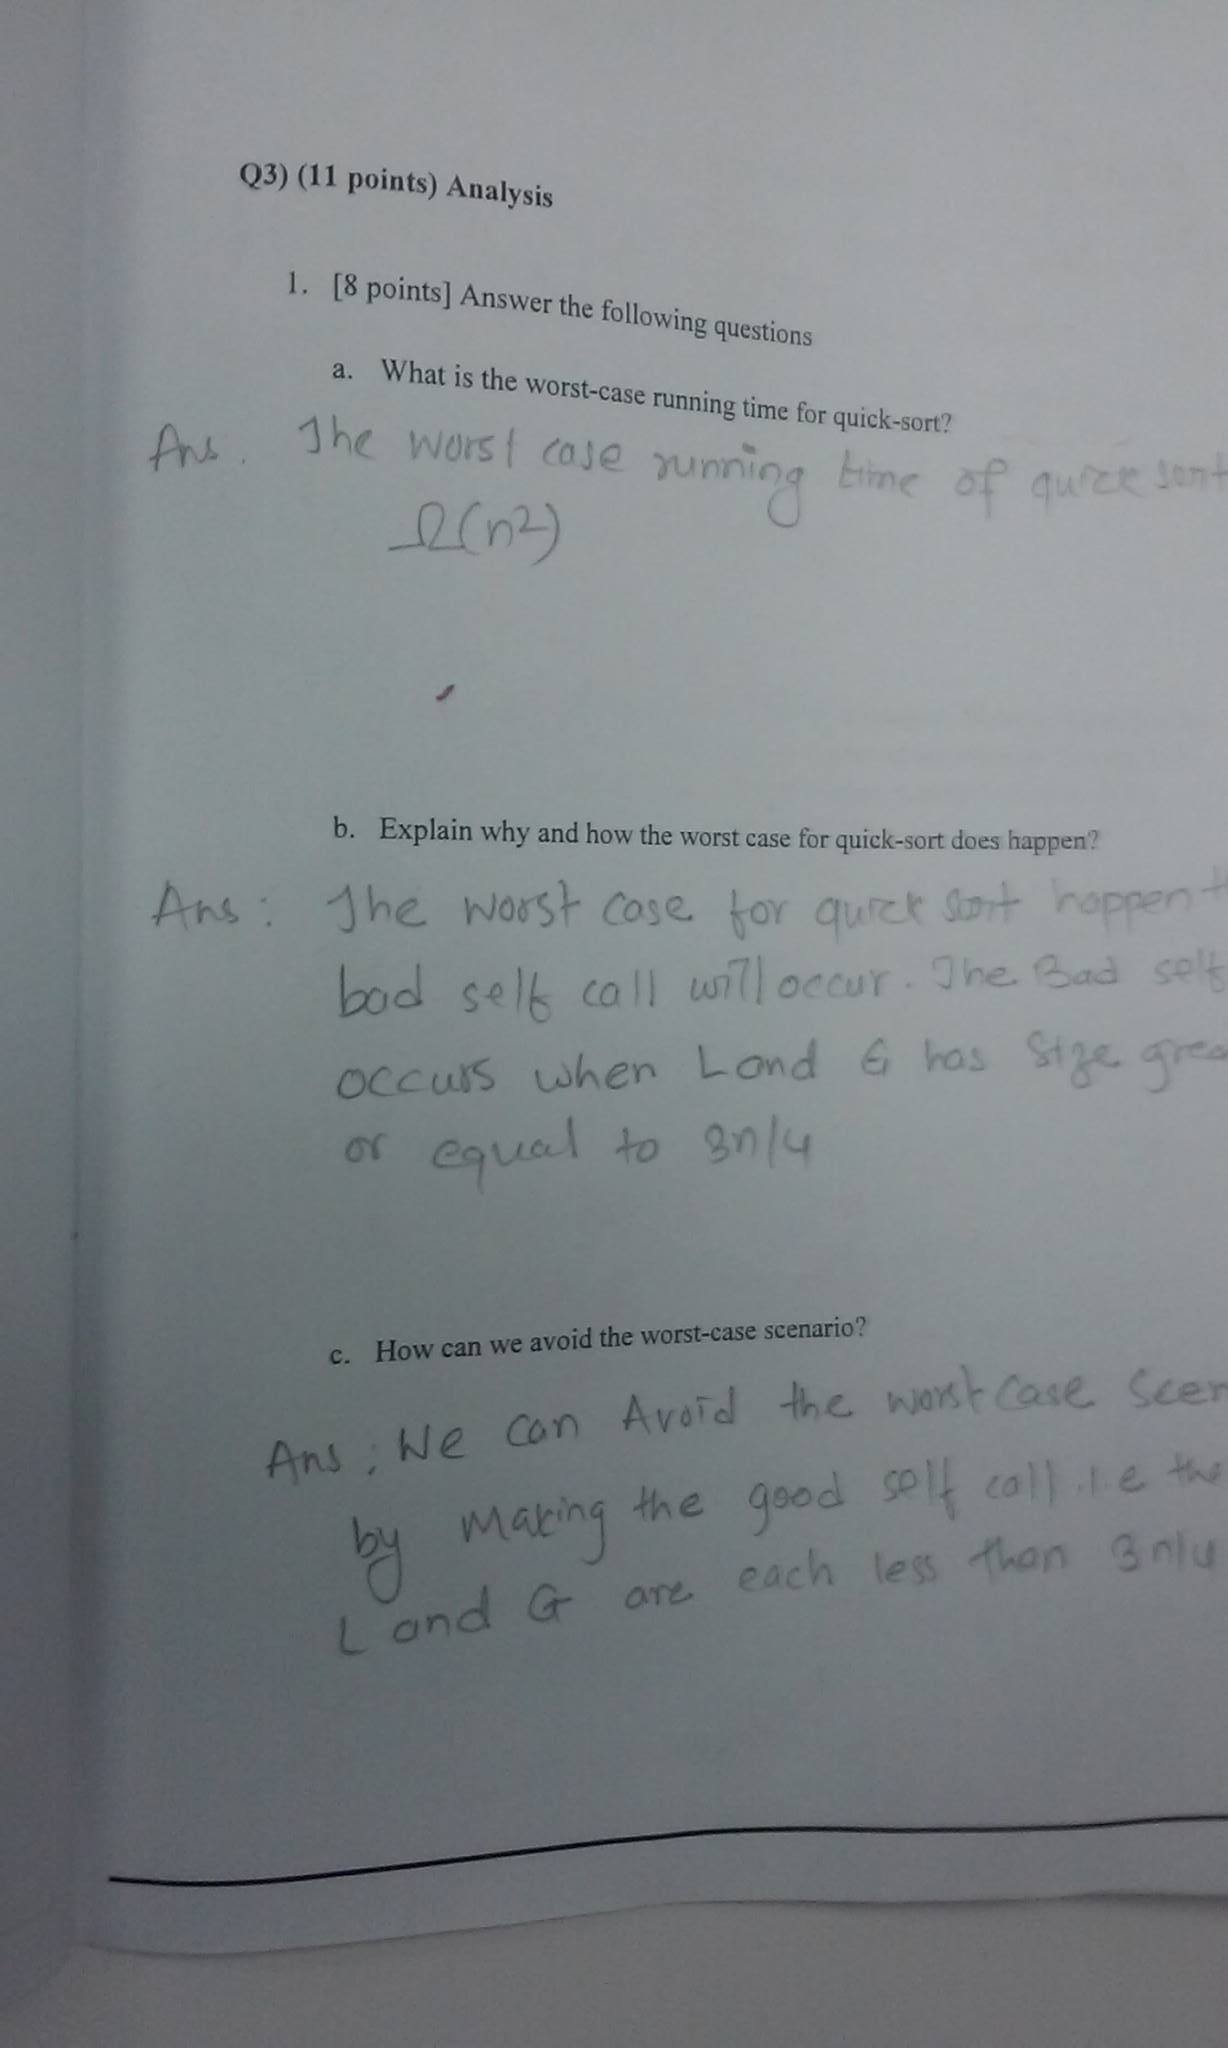 Q3) (11 points) Analysis
1. [8 points] Answer the following questions
a. What is the worst-case running time for quick-sort?
Ans. The worst case running time of quick sort
Ω(n2)
b. Explain why and how the worst case for quick-sort does happen?
Ans: The worst case for quick sort happen
bad self call will occur. The Bad self
occurs when L and G has size grea
or equal to 3n/4
c. How can we avoid the worst-case scenario?
Ans: We can Avoid the worst case Scen
by Making the good self call i.e the
L and G are each less than 3n/4